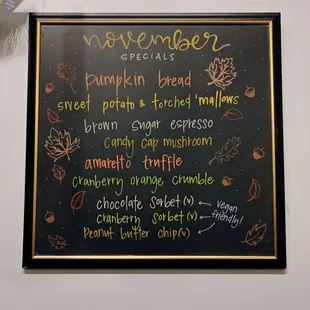 november
SPECIALS
pumpkin bread
sweet potato & torched 'mallows
brown sugar espresso
candy cap mushroom
amaretto truffle
cranberry orange crumble
chocolate sorbet (v)
cranberry sorbet (v)
Peanut butter chip (v)
vegan
friendly!